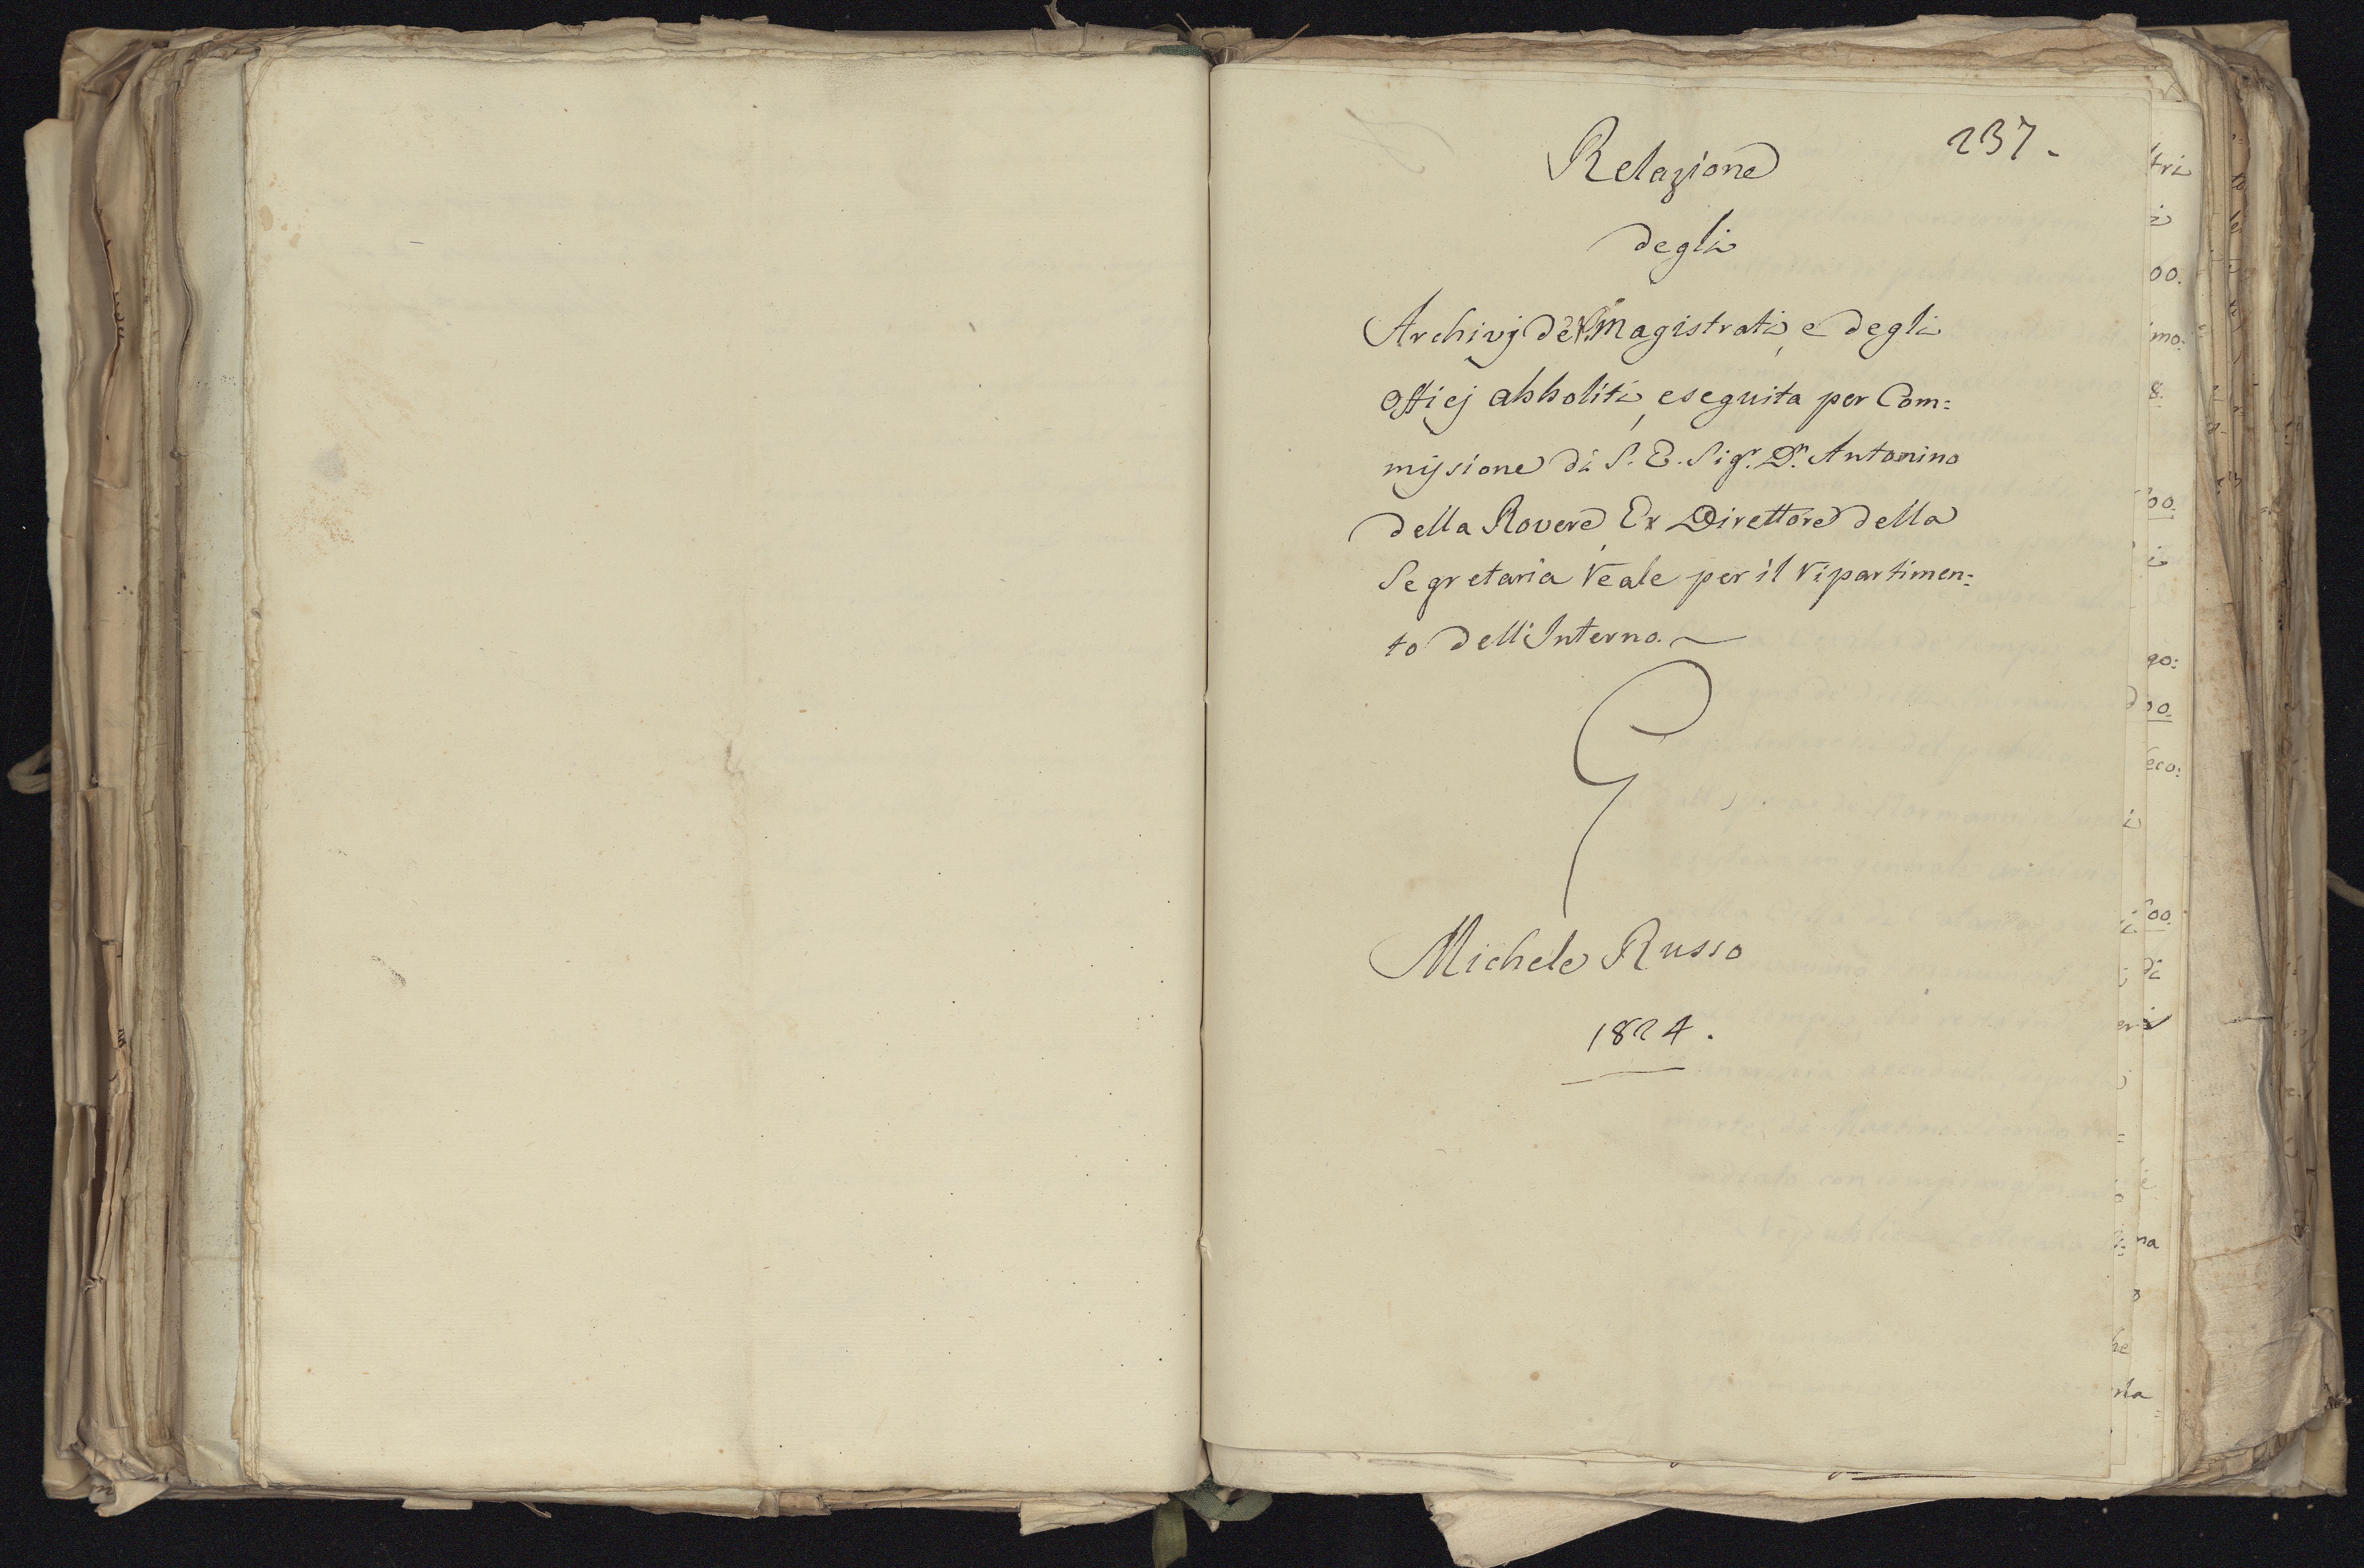 237.
Relazione
degli
Archivj de' Magistrati, e degli
Officj abboliti, eseguita per Com=
missione di S. E. Sigr. Dn. Antonino
della Rovere, Ex Direttore della
Segretaria reale per il ripartimen=
to dell'Interno.
Michele Russo
1824.